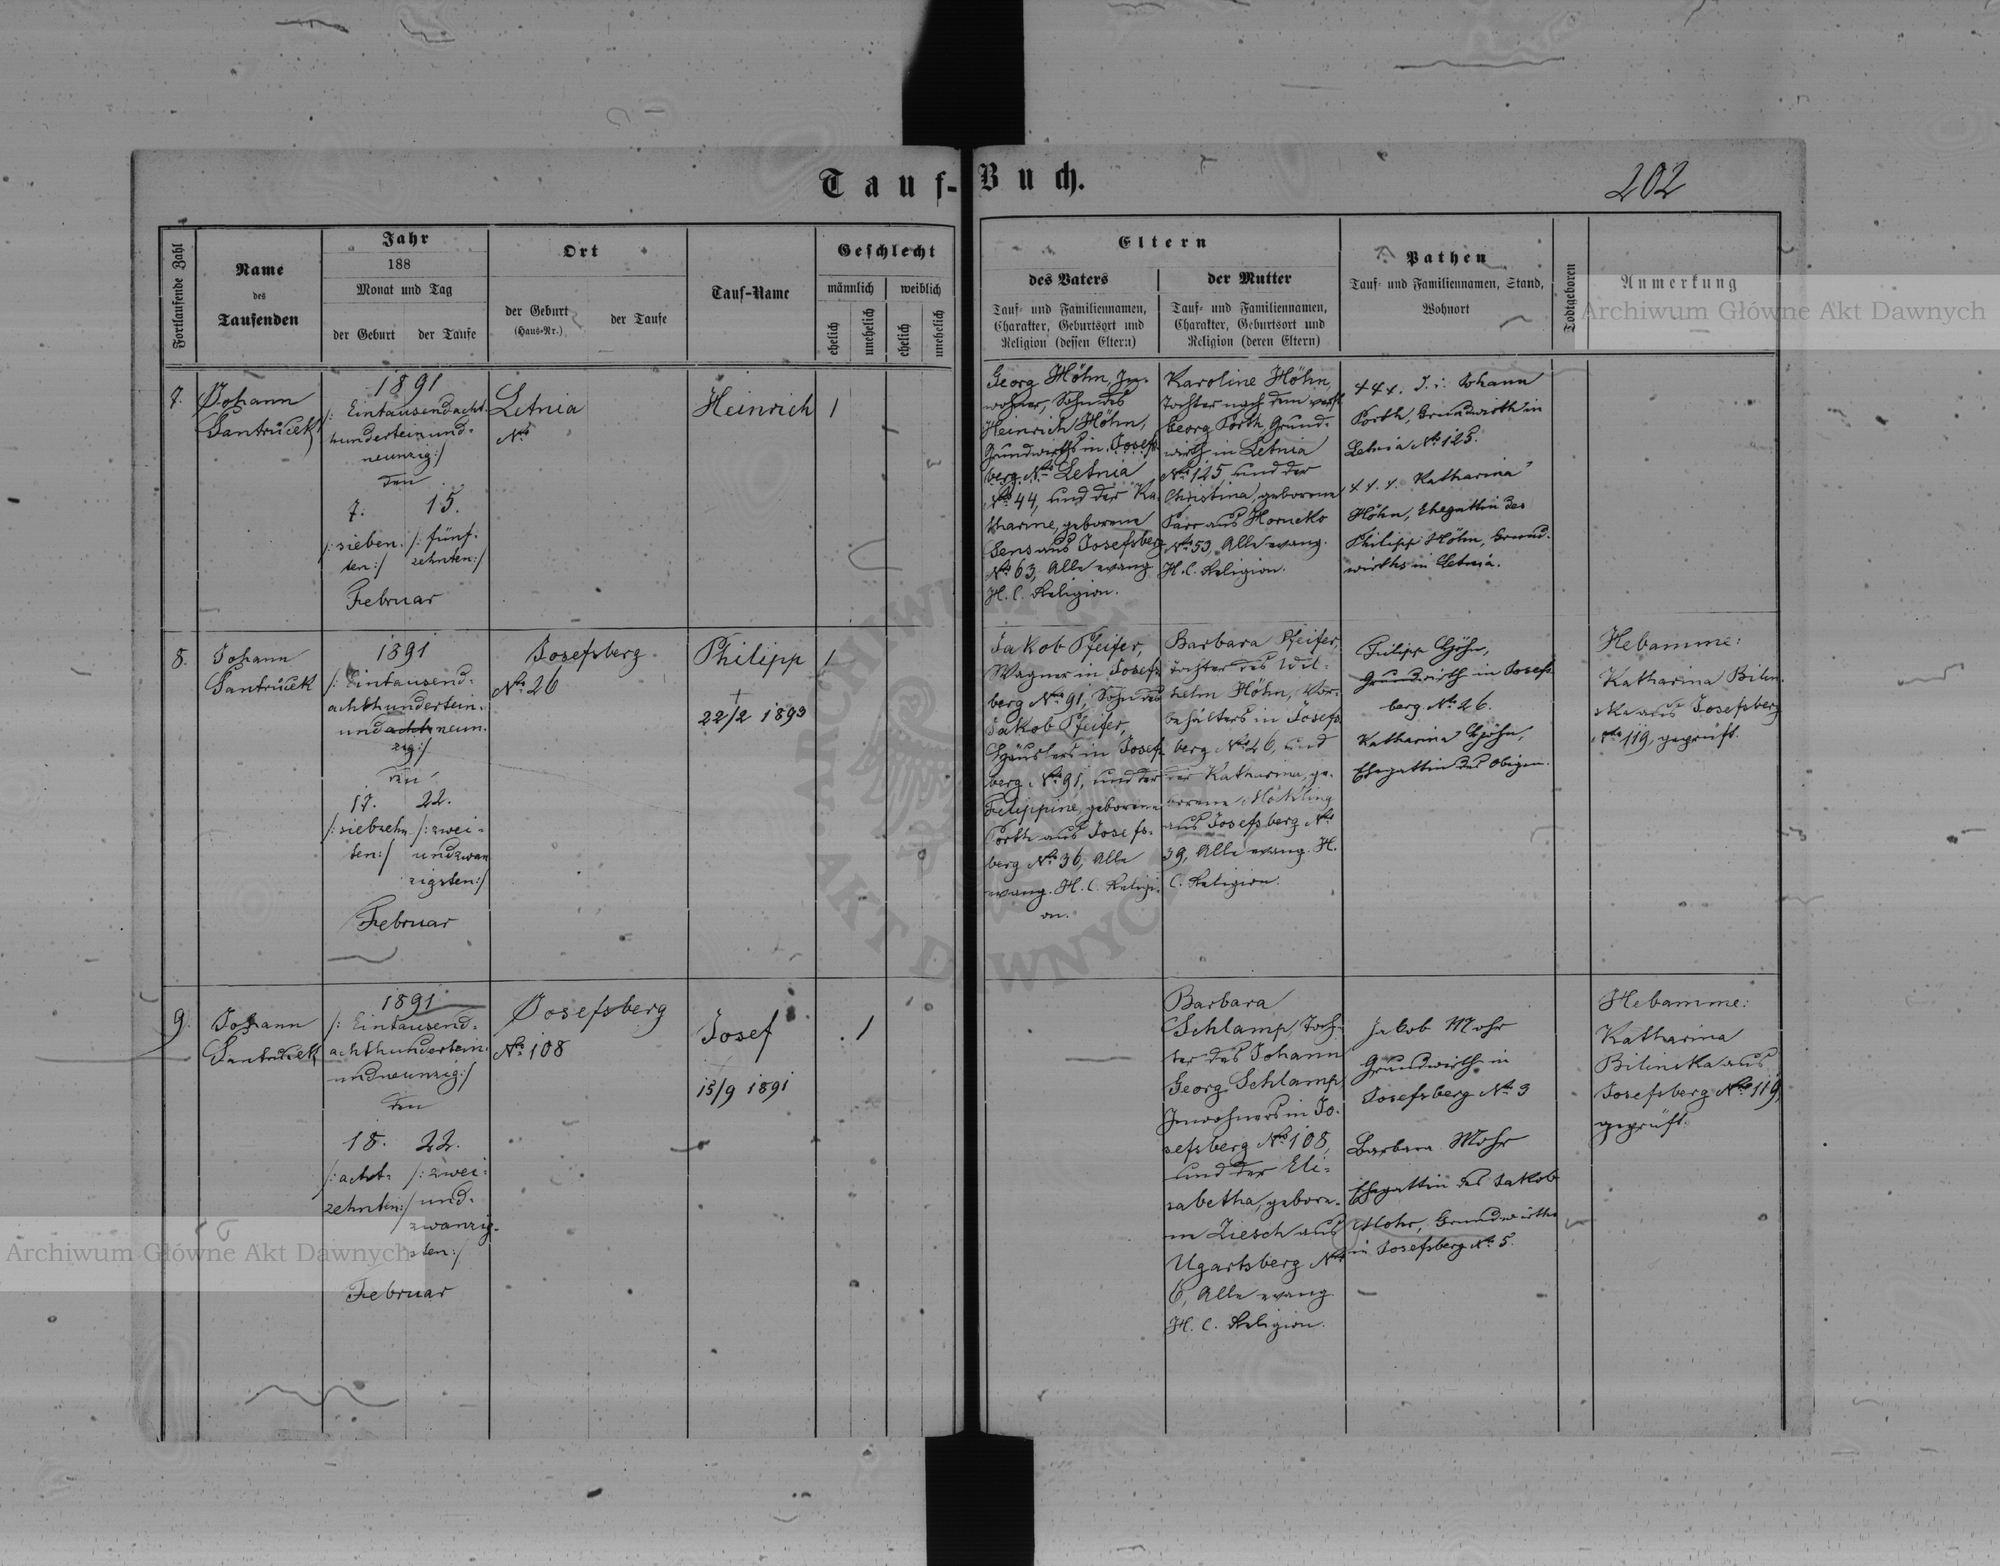 Tauf-Buch.
202
Fortlaufende Zahl
Name
des
Taufenden
Jahr
188
Monat und Tag
der Geburt
der Taufe
Ort
der Geburt
(Haus-Nr.)
der Taufe
Tauf-Name
Geschlecht
männlich
weiblich
ehelich
unehelich
ehelich
unehelich
Eltern
des Vaters
Tauf- und Familiennamen,
Charakter, Geburtsort und
Religion (dessen Eltern)
der Mutter
Tauf- und Familiennamen,
Charakter, Geburtsort und
Religion (deren Eltern)
Pathen
Tauf- und Familiennamen, Stand,
Wohnort
Todtgeboren
Anmerkung
7.
Johann
Santrůček
1891
/: Eintausendacht-
hunderteinund-
neunzig:/
den
7. 15.
/: sieben- /: fünf-
ten:/ zehnten:/
Februar
Letnia
No
Heinrich
1
Georg Höhn, In-
wohner, Sohn des
Heinrich Höhn,
Grundwirths in Josefs-
berg No Letnia
No 44, und der Ka-
tharine, geborene
aus Josefsberg
No 63, Alle evang.
H. C. Religion.
Karoline Höhn,
Tochter nach dem verst.
Georg Porth, Grund-
wirth in Letnia
No 125 und der
Christina, geborene
aus
No 53, Alle evang.
H. C. Religion.
+++. Johann
Porth, Grundwirth in
Letnia No 125.
+++. Katharina
Höhn, Ehegattin des
Philipp Höhn, Grund-
wirths in Letnia.
8.
Johann
Santrůček
1891
/: Eintausend-
achthundertein-
undachtneun-
zig:/
den
17. 22.
/: siebzehn- /: zwei-
ten:/ undzwan
zigsten:/
Februar
Josefsberg
No 26
Philipp
+
22/2 1893
1
Jakob Pfeifer,
Wagner in Josefs-
berg No 91, Sohn des
Jakob Pfeifer,
Häuslers in Josefs-
berg No 91, und der
Filippine, geborene
Porth aus Josefs-
berg No 36, Alle
evang. H. C. Religi-
on.
Barbara Pfeifer,
Tochter des Wil-
helm Höhn, Vor-
behälters in Josefs-
berg No 26, und
der Katharina, ge-
borene
aus Josefsberg No
39, Alle evang. H.
C. Religion.
Filipp Höhn,
Grundwirth in Josefs-
berg No 26.
Katharina Höhn,
Ehegattin des Obigen.
Hebamme:
Katharina Bilin-
ska aus Josefsberg
No 119, geprüft.
9.
Johann
Santrůček
1891
/: Eintausend-
achthundertein-
undneunzig:/
den
18. 22.
/: acht- /: zwei-
zehnten:/ und-
zwanzig-
sten:/
Februar
Josefsberg
No 108
Josef
15/9 1891
1
Barbara
Schlamp, Toch-
ter des Johann
Georg Schlamp,
Inwohners in Jo-
sefsberg No 108,
und der Eli-
sabetha, gebore-
ne Ziesch aus
Ugartsberg No
6, Alle evang.
H. C. Religion.
Jakob Mohr
Grundwirth in
Josefsberg No 3
Barbara Mohr
Ehegattin des Jakob
Mohr, Grundwirths
in Josefsberg No 5.
Hebamme:
Katharina
Bilinska aus
Josefsberg No 119,
geprüft.
Archiwum Główne Akt Dawnych
Archiwum Główne Akt Dawnych
ARCHIWUM
AKT DAWNYCH